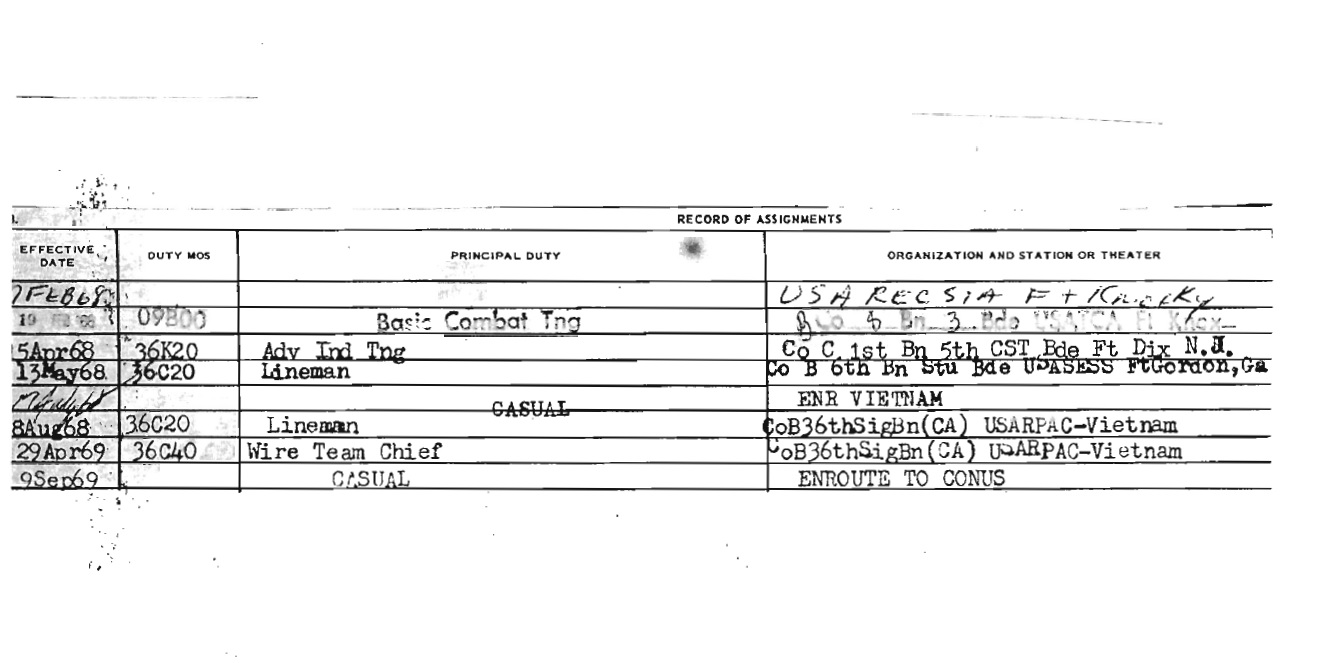 RECORD OF ASSIGNMENTS
EFFECTIVE DATE DUTY MOS PRINCIPAL DUTY ORGANIZATION AND STATION OR THEATER
7FEB68 USA RECSTA Ft Ky
19 FEB 68 09B00 Basic Combat Tng Co Bn 3 Bde USATCA Ft Knox
5Apr68 36K20 Adv Ind Tng Co C 1st Bn 5th CST Bde Ft Dix N.J.
13May68 36C20 Lineman Co B 6th Bn Stu Bde USASESS FtGordon,Ga
CASUAL ENR VIETNAM
8Aug68 36C20 Lineman CoB36thSigBn(CA) USARPAC-Vietnam
29Apr69 36C40 Wire Team Chief CoB36thSigBn(CA) USARPAC-Vietnam
9Sep69 CASUAL ENROUTE TO CONUS